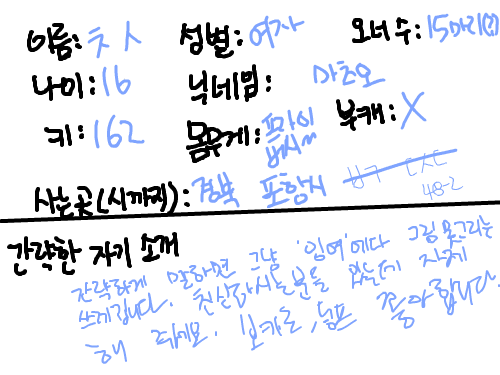 이름: ㅊㅅ 성별: 여자 오너 수: 15마리(?)
나이: 16 닉네임: 마초오
키: 162 몸무게: 프라이버시~ 부캐: X
사는곳(시까지): 경북 포항시
48-2
간략한 자기 소개
간략하게 말하면 그냥 '잉여'에다 그림 못그리는
쓰레깁니다. 친신하시는분들 있는데 자제
해 주세요. 보카로, 좋아합니다.